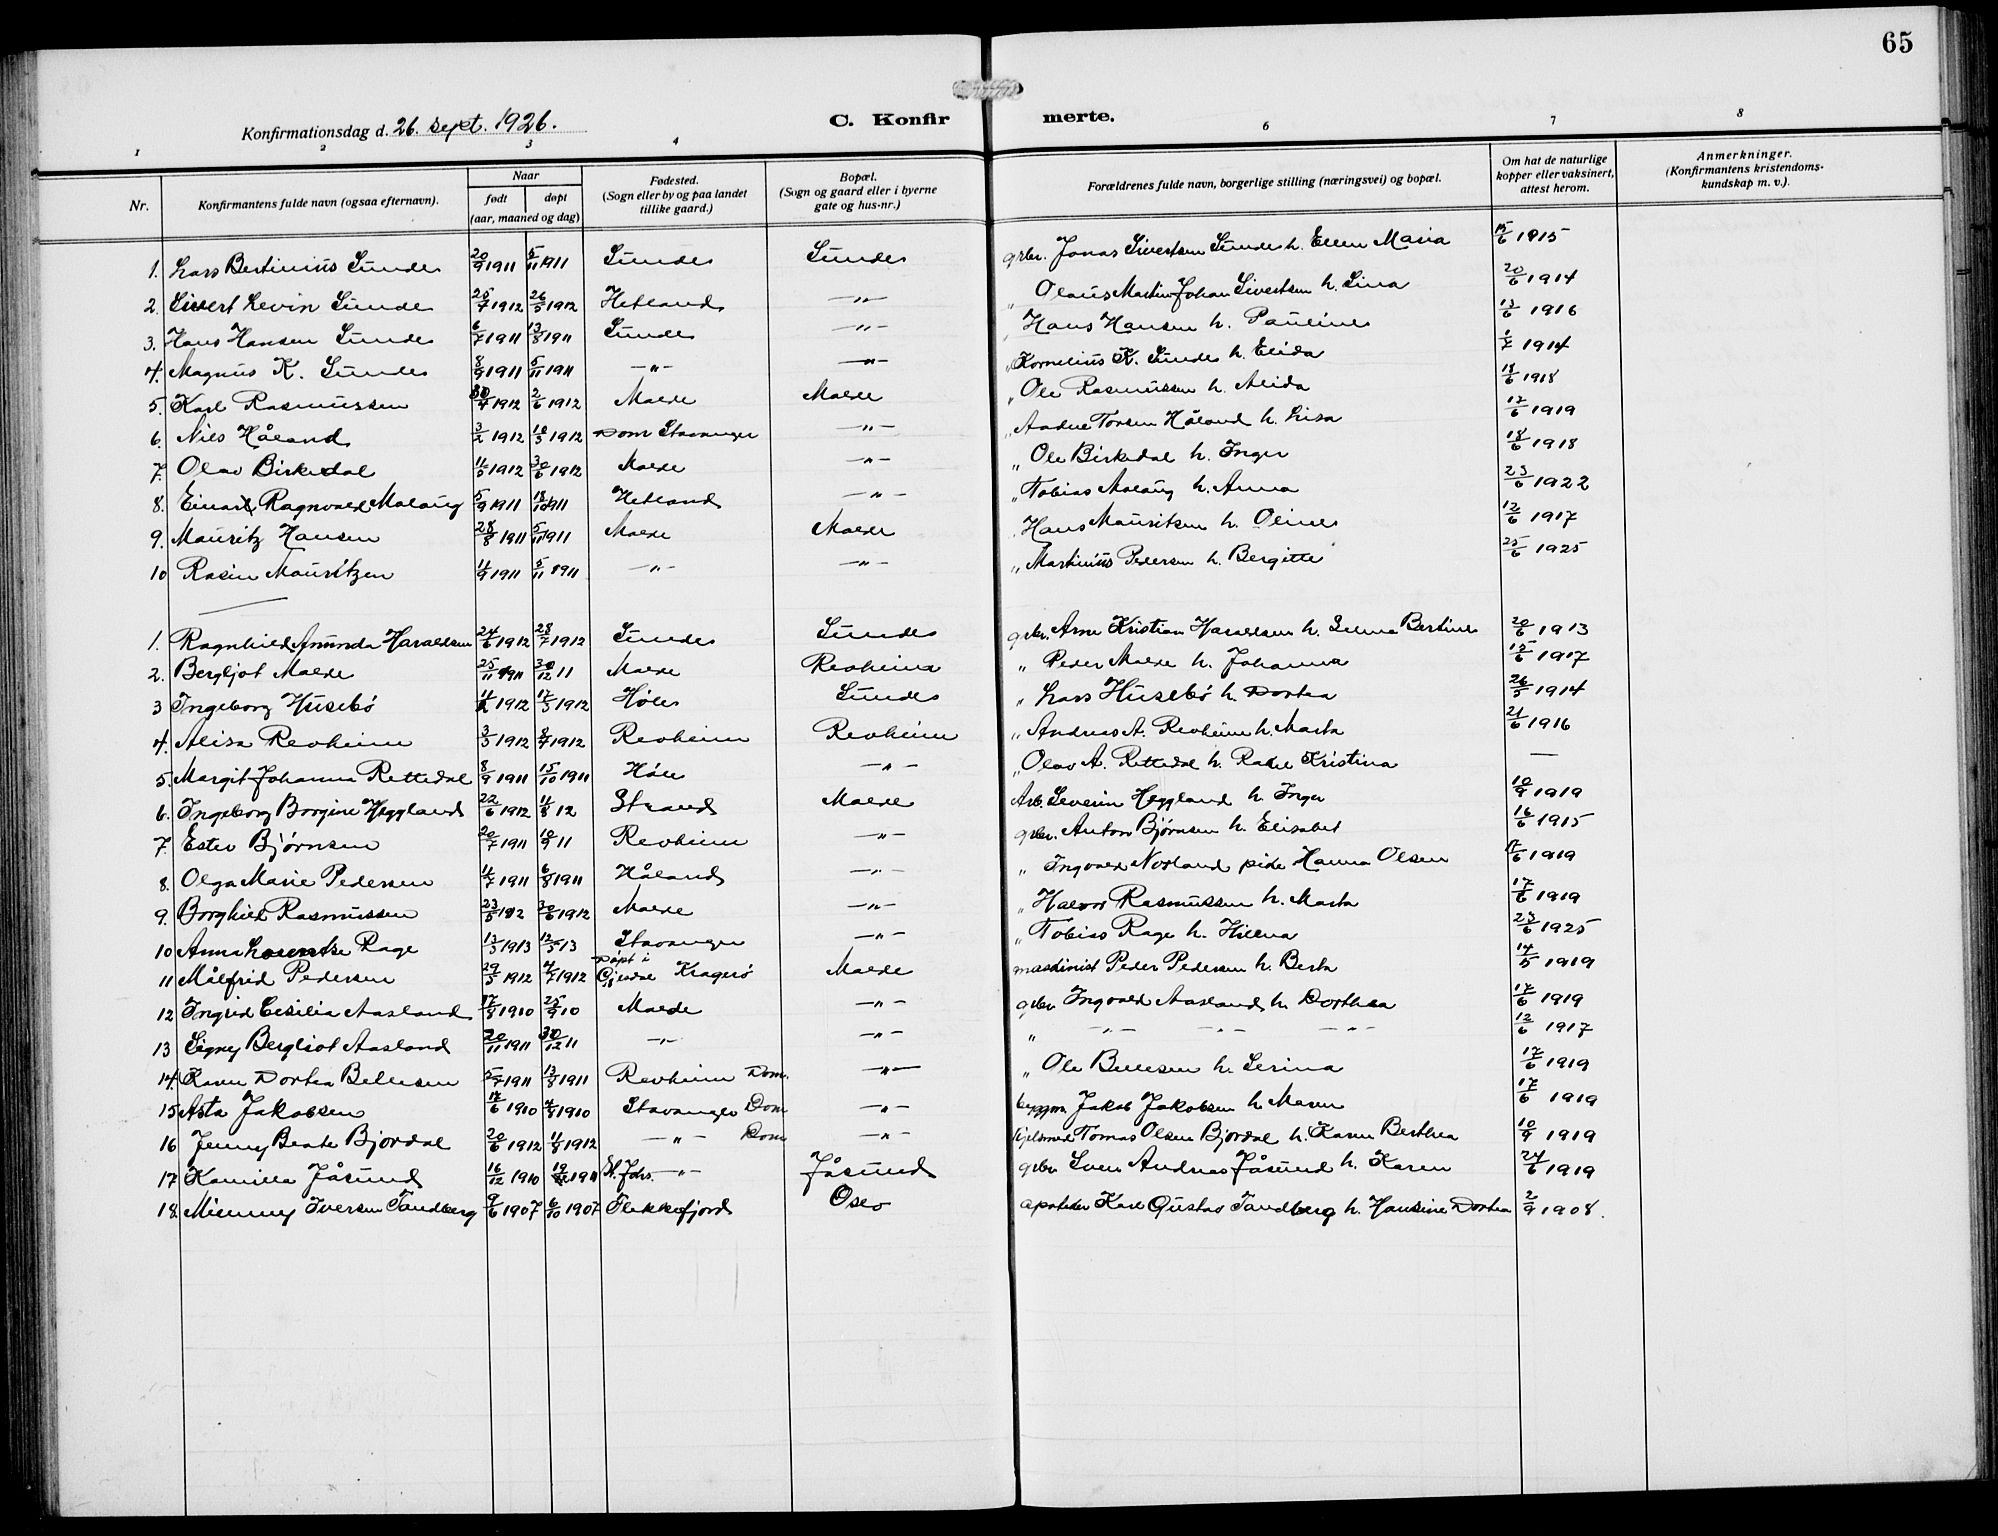 65
Konfirmationsdag d. 26. sept. 1926.
C. Konfir merte.
1 2 3 4 6 7 8
Nr.
Konfirmantens fulde navn (ogsaa efternavn).
Naar
født døpt
(aar, maaned og dag)
Fødested.
(Sogn eller by og paa landet
tillike gaard.)
Bopæl.
(Sogn og gaard eller i byerne
gate og hus-nr.)
Forældrenes fulde navn, borgerlige stilling (næringsvei) og bopæl.
Om hat de naturlige
kopper eller vaksinert,
attest herom.
Anmerkninger.
(Konfirmantens kristendoms-
kundskap m. v.).
1. Lars Bertinius Sunde 20/9 1911 5/11 1911 Sunde Sunde grbr. Jonas Sivertsen Sunde h. Ellen Maria 15/6 1915
2. Sivert Levin Sunde 25/4 1912 26/5 1912 Hetland —"— " Olaus Martin Johan Sivertsen h. Lina 20/6 1914
3. Hans Hansen Sunde 6/7 1911 13/8 1911 Sunde —"— " Hans Hansen h. Pauline 13/6 1916
4. Magnus K. Sunde 8/9 1911 5/11 1911 —"— —"— " Kornelius K. Sunde h. Elida 1/7 1914
5. Karl Rasmussen 30/4 1912 2/6 1912 Malde Malde " Ole Rasmussen h. Alida 18/6 1918
6. Nils Håland 3/2 1912 10/3 1912 Dom Stavanger —"— " Torsen Håland h. Lisa 17/6 1919
7. Olav Birkedal 11/5 1912 30/6 1912 Malde —"— " Ole Birkedal h. Inger 18/6 1918
8. Einar Ragnvald Malaug 5/9 1911 1911 Hetland —"— " Tobias Malaug h. Anna 23/6 1922
9. Mauritz Hansen 28/8 1911 5/11 1911 Malde Malde " Hans Mauritsen h. Oline 12/6 1917
10 Rasin Mauritzen 11/9 1911 5/11 1911 —"— —"— " Martinius Pedersen h. Bergitte 25/6 1925
1. Ragnhild Amunda Haraldsen 24/6 1912 28/7 1912 Sunde Sunde grbr. Arne Kristian Haraldsen h. Selma Bertine 20/6 1913
2. Bergljot Malde 25/11 1911 30/12 11 Malde Revheim " Peder Malde h. Johanna 12/6 1917
3 Ingeborg Husebø 1912 17/3 1912 Høle Sunde " Lars Husebø h. Dortea 26/5 1914
4. Alisa Revheim 3/3 1912 8/4 1912 Revheim Revheim " Andreas A. Revheim h. Marta 21/6 1916
5. Margit Johanna Rettedal 8/9 1911 15/10 1911 Høle —"— " Olav A. Rettedal h. Rakel Kristina —
6. Ingeborg Borgine Heggland 22/6 1912 11/8 12 Strand Malde Arb. Severin Heggland h. Inger 10/9 1919
7. Ester Bjørnsen 20/7 1911 10/9 11 Revheim —"— grbr. Anton Bjørnsen h. Elisabet 16/6 1915
8. Olga Marie Pedersen 11/7 1911 6/8 1911 Håland —"— " Ingvald Norland pike Hanna Olsen 17/6 1919
9. Borghild Rasmussen 23/5 1912 30/6 1912 Malde —"— " Halvor Rasmussen h. Marta 17/6 1919
10 Anna Lourentse Rage 13/3 1913 12/5 13 Stavanger —"— " Tobias Rage h. Hilena 23/6 1925
11 Målfrid Pedersen 29/3 1912 4/7 1912 Døpt i Kragerø Malde maskinist Peder Pedersen h. Berta 14/5 1919
12 Ingrid Cesilia Aasland 17/8 1910 25/9 10 Malde —"— grbr Ingvald Aasland h. Dorthea 17/6 1919
13 Signy Bergliot Aasland 20/11 1911 30/12 11 —"— —"— " —"— —"— —"— 12/6 1917
14. Karen Dortea Bellesen 5/7 1911 13/8 1911 Revheim Dom. —"— " Ole Bellesen h. Serina 17/6 1919
15 Asta Jakobsen 12/6 1910 7/8 1910 Stavanger Dom —"— byggm. Jakob Jakobsen h. Maren 17/6 1919
16 Jenny Beate Bjordal 20/6 1912 11/8 1912 —"— Dom —"— Tomas Olsen Bjordal h. Karen Berthea 10/9 1919
17 Kamilla Jåsund 16/12 1910 1911 St. Johs. —"— Jåsund grbr Sven Andreas Jåsund h. Karen 24/6 1919
18. Mimmy Iversen Tandberg 9/6 1907 6/10 1907 Flekkefjord Oslo apoteker Karl Gustav Tandberg h. Hansine Dortea 2/9 1908.